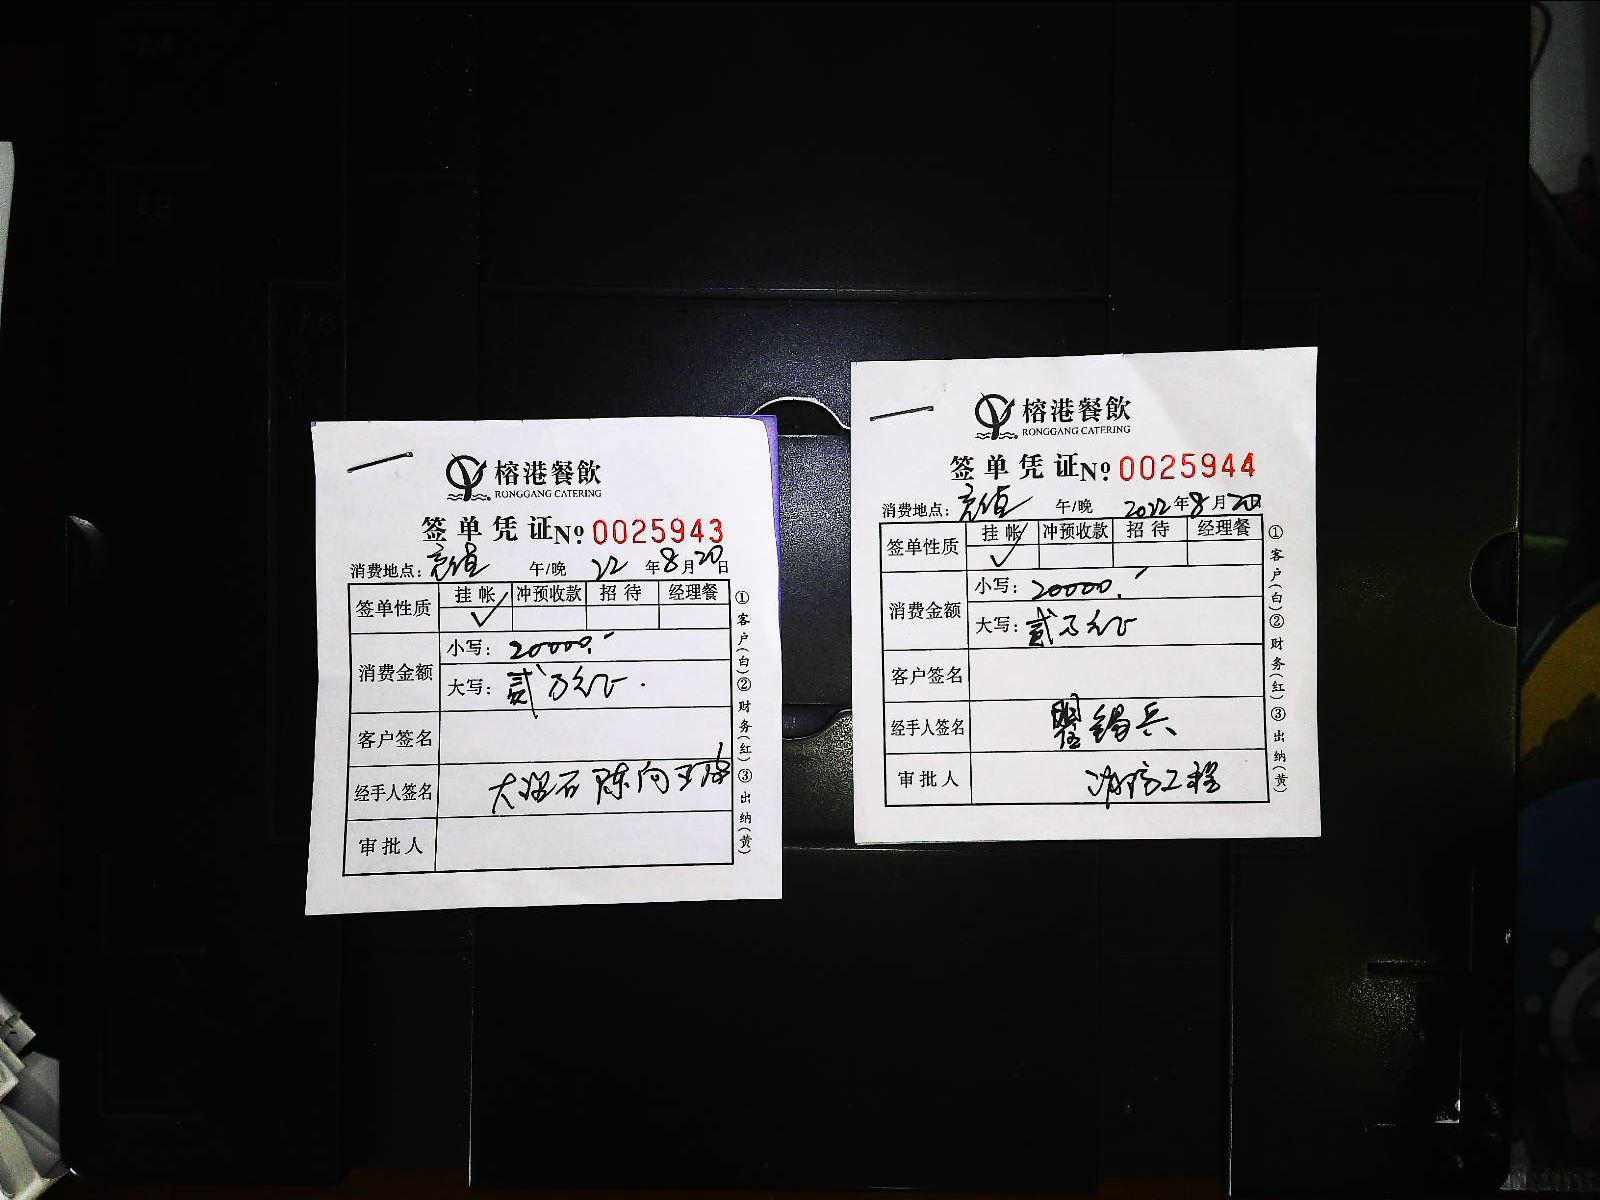 榕港餐飲
RONGGANG CATERING
签单凭证 No 0025943
消费地点：充值 午/晚 22 年 8 月 20 日
签单性质 挂帐 冲预收款 招待 经理餐
✓
消费金额
小写：20000.-
大写：贰万元正.
客户签名
经手人签名 大理石 陈向
审批人
①客户(白)②财务(红)③出纳(黄)
榕港餐飲
RONGGANG CATERING
签单凭证 No 0025944
消费地点：充值 午/晚 2022 年 8 月 20日
签单性质 挂帐 冲预收款 招待 经理餐
✓
消费金额
小写：20000.-
大写：贰万元正
客户签名
经手人签名 瞿锡兵
审批人 消防工程
①客户(白)②财务(红)③出纳(黄)